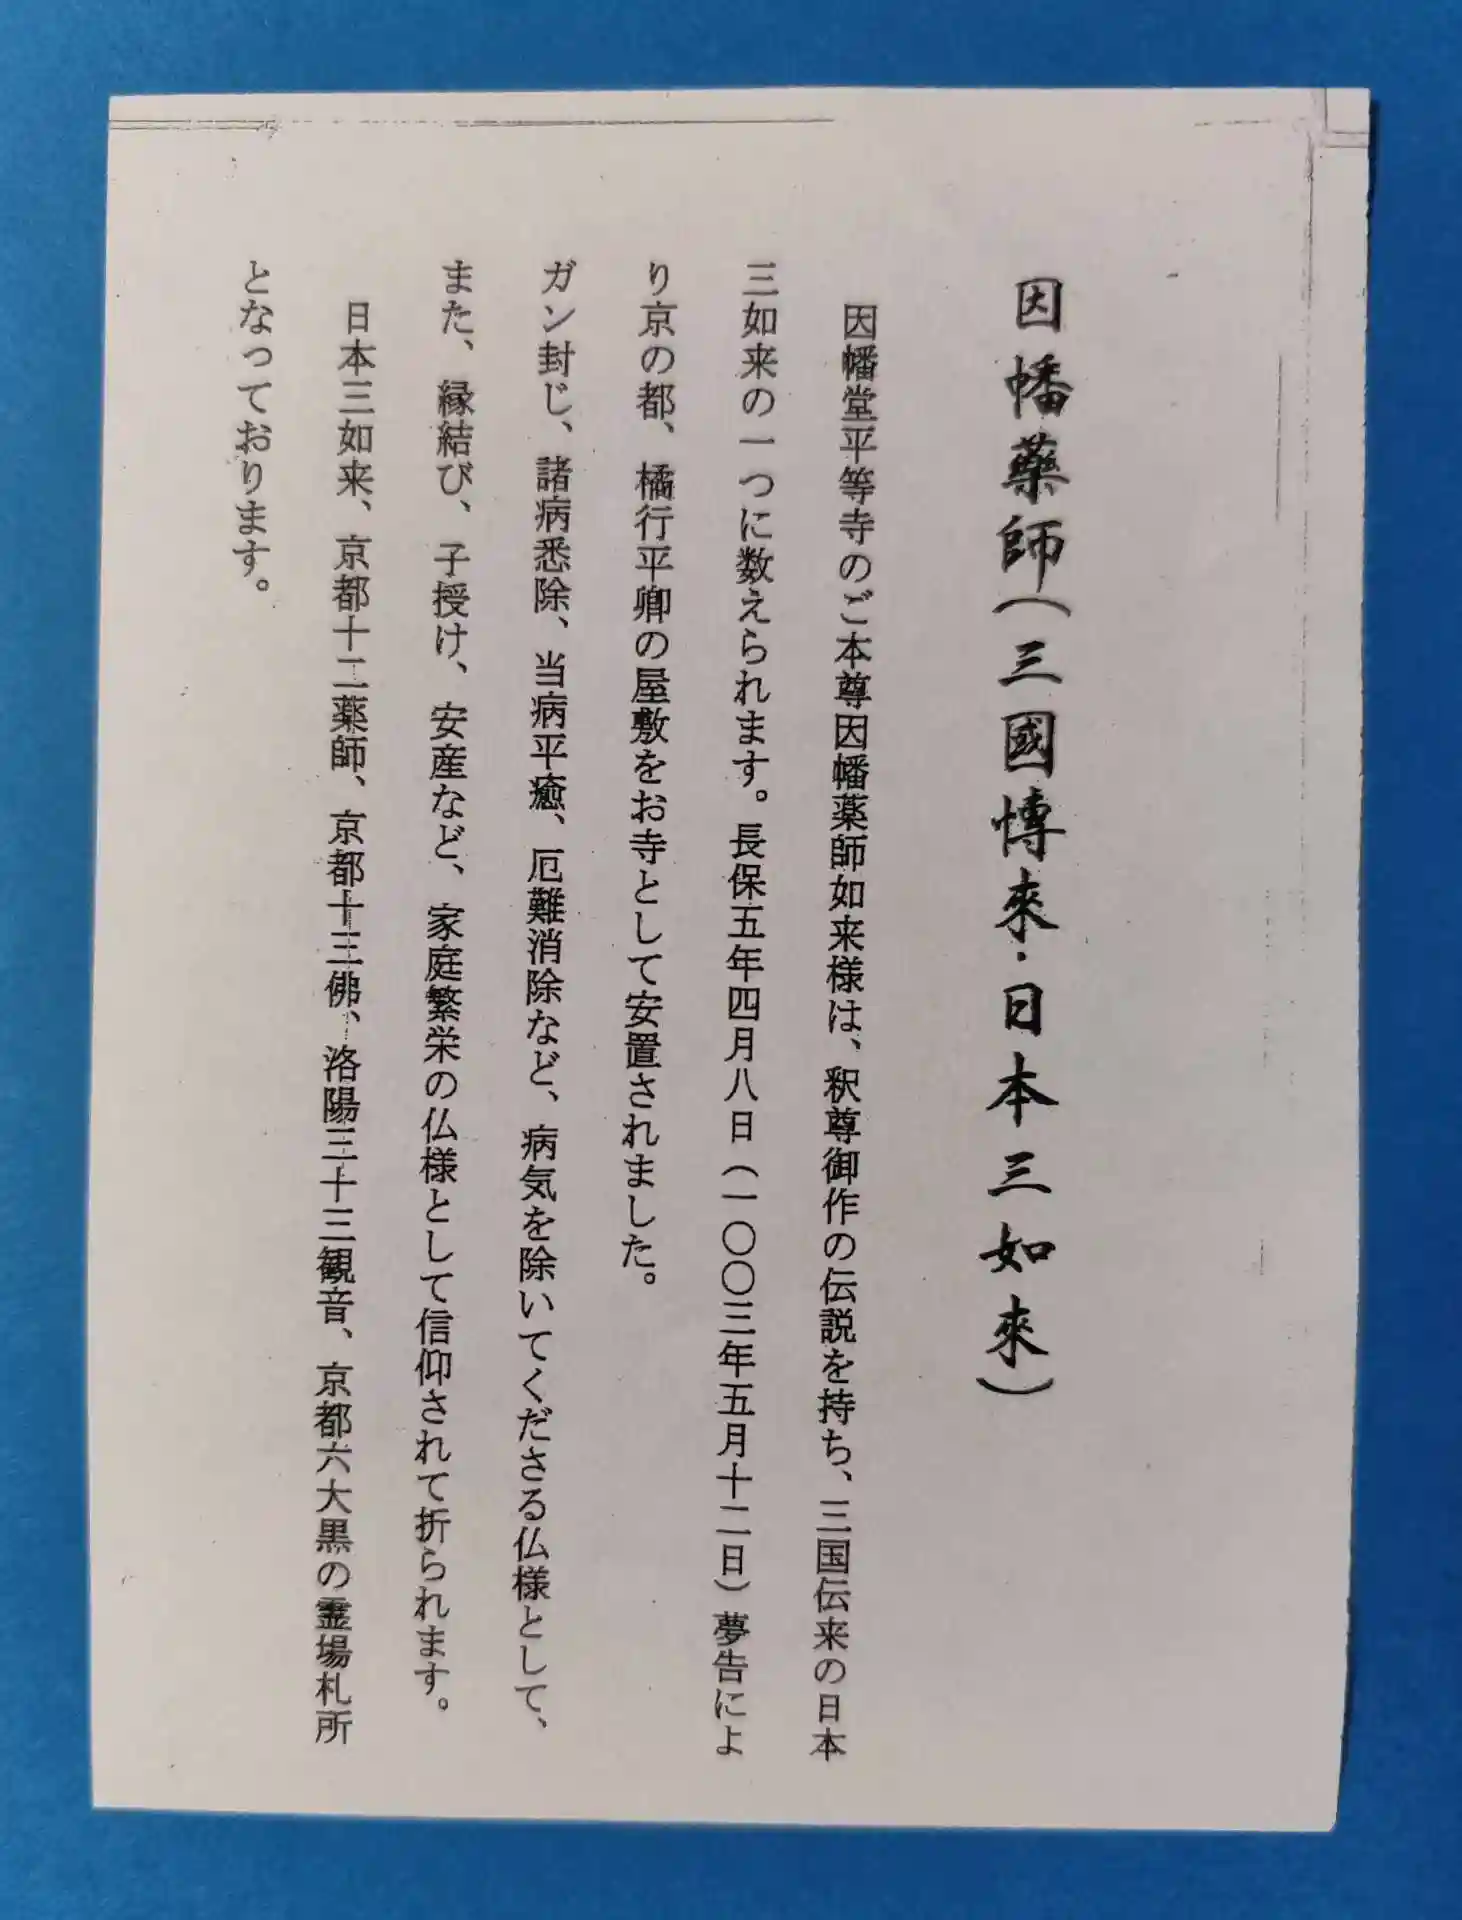 因幡藥師(三國傳來・日本三如來)
因幡堂平等寺のご本尊因幡薬師如来様は、釈尊御作の伝説を持ち、三国伝来の日本
三如来の一つに数えられます。長保五年四月八日(一〇〇三年五月十二日)夢告によ
り京の都、橘行平卿の屋敷をお寺として安置されました。
ガン封じ、諸病悉除、当病平癒、厄難消除など、病気を除いてくださる仏様として、
また、縁結び、子授け、安産など、家庭繁栄の仏様として信仰されて折られます。
日本三如来、京都十二薬師、京都十三佛、洛陽三十三観音、京都六大黒の霊場札所
となっております。